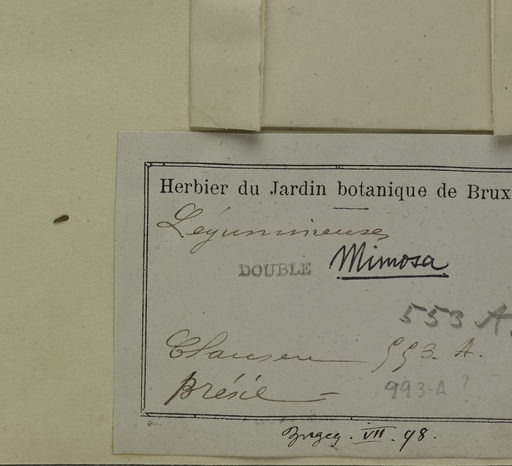 Herbier du Jardin botanique de Brux
Légumineuses
DOUBLE Mimosa
553 A.
Clausen 993. A.
Brésil
993-A ?
VII. 98.